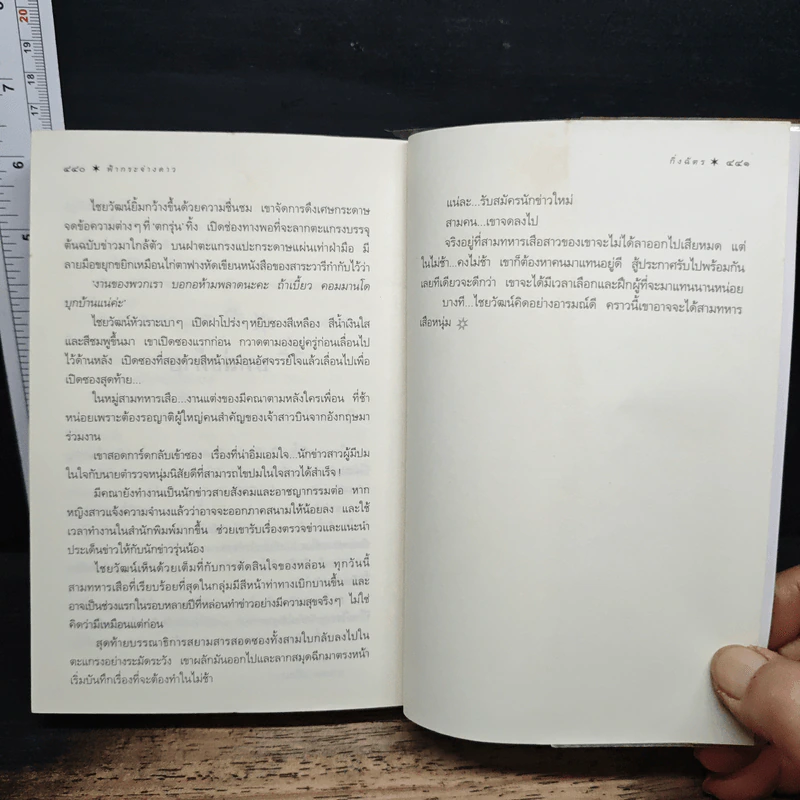 ๔๔๐ ✶ ฟ้ากระจ่างดาว
ไชยวัฒน์ยิ้มกว้างขึ้นด้วยความชื่นชม เขาจัดการดึงเศษกระดาษ
จดข้อความต่างๆ ที่ 'ตกรุ่น' ทิ้ง เปิดช่องทางพอที่จะลากตะแกรงบรรจุ
ต้นฉบับข่าวมาใกล้ตัว บนฝาตะแกรงแปะกระดาษแผ่นเท่าฝ่ามือ มี
ลายมือขยุกขยิกเหมือนไก่ตาฟางหัดเขียนหนังสือของสาระวารีกำกับไว้ว่า
'งานของพวกเรา บอกอห้ามพลาดนะคะ ถ้าเบี้ยว คอมมานโด
บุกบ้านแน่ค่ะ'
ไชยวัฒน์หัวเราะเบาๆ เปิดฝาโปร่งๆ หยิบซองสีเหลือง สีน้ำเงินใส
และสีชมพูขึ้นมา เขาเปิดซองแรกก่อน กวาดตามองอยู่ครู่ก่อนเลื่อนไป
ไว้ด้านหลัง เปิดซองที่สองด้วยสีหน้าเหมือนอัศจรรย์ใจแล้วเลื่อนไปเพื่อ
เปิดซองสุดท้าย...
ในหมู่สามทหารเสือ...งานแต่งของมีคณาตามหลังใครเพื่อน ที่ช้า
หน่อยเพราะต้องรอญาติผู้ใหญ่คนสำคัญของเจ้าสาวบินจากอังกฤษมา
ร่วมงาน
เขาสอดการ์ดกลับเข้าซอง เรื่องที่น่าอิ่มเอมใจ...นักข่าวสาวผู้มีปม
ในใจกับนายตำรวจหนุ่มนิสัยดีที่สามารถไขปมในใจสาวได้สำเร็จ!
มีคณายังทำงานเป็นนักข่าวสายสังคมและอาชญากรรมต่อ หาก
หญิงสาวแจ้งความจำนงแล้วว่าอาจจะออกภาคสนามให้น้อยลง และใช้
เวลาทำงานในสำนักพิมพ์มากขึ้น ช่วยเขารับเรื่องตรวจข่าวและแนะนำ
ประเด็นข่าวให้กับนักข่าวรุ่นน้อง
ไชยวัฒน์เห็นด้วยเต็มที่กับการตัดสินใจของหล่อน ทุกวันนี้
สามทหารเสือที่เรียบร้อยที่สุดในกลุ่มมีสีหน้าท่าทางเบิกบานขึ้น และ
อาจเป็นช่วงแรกในรอบหลายปีที่หล่อนทำข่าวอย่างมีความสุขจริงๆ ไม่ใช่
คิดว่ามีเหมือนแต่ก่อน
สุดท้ายบรรณาธิการสยามสารสอดซองทั้งสามใบกลับลงไปใน
ตะแกรงอย่างระมัดระวัง เขาผลักมันออกไปและลากสมุดฉีกมาตรงหน้า
เริ่มบันทึกเรื่องที่จะต้องทำในไม่ช้า
กิ่งฉัตร ✶ ๔๔๑
แน่ละ...รับสมัครนักข่าวใหม่
สามคน...เขาจดลงไป
จริงอยู่ที่สามทหารเสือสาวของเขาจะไม่ได้ลาออกไปเสียหมด แต่
ในไม่ช้า...คงไม่ช้า เขาก็ต้องหาคนมาแทนอยู่ดี สู้ประกาศรับไปพร้อมกัน
เลยทีเดียวจะดีกว่า เขาจะได้มีเวลาเลือกและฝึกผู้ที่จะมาแทนนานหน่อย
บางที...ไชยวัฒน์คิดอย่างอารมณ์ดี คราวนี้เขาอาจจะได้สามทหาร
เสือหนุ่ม
7
6
20
19
18
17
16